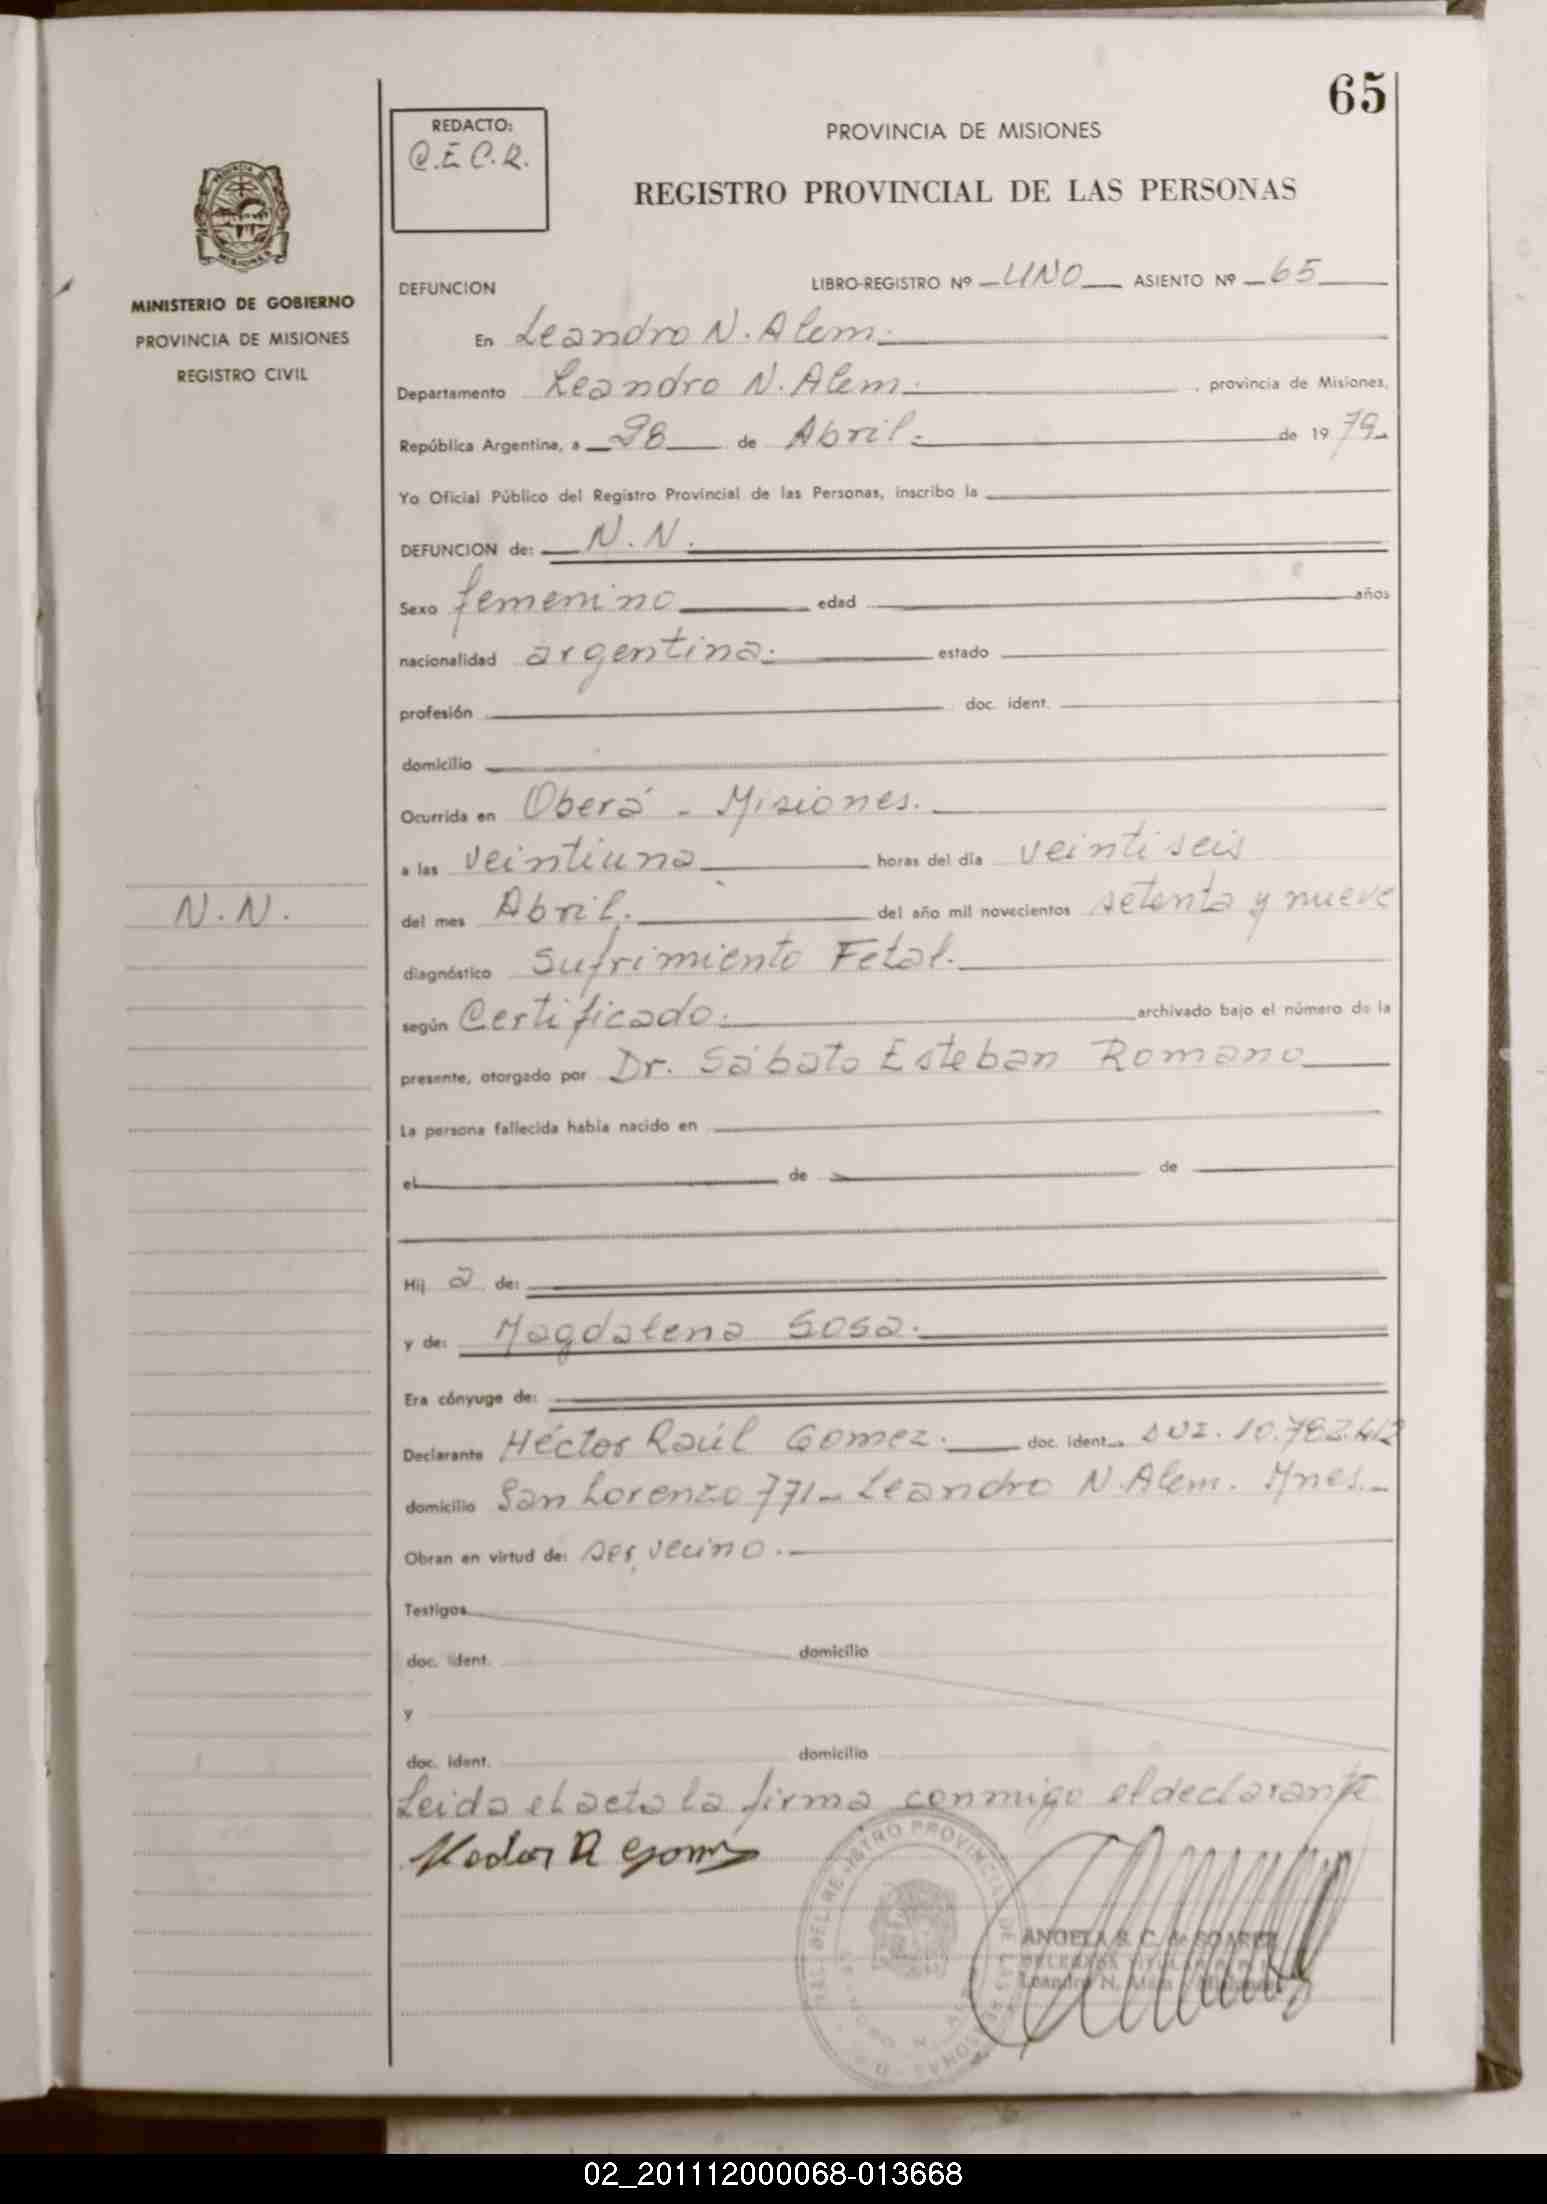 65
REDACTO:
C.E.C.R.
PROVINCIA DE MISIONES
REGISTRO PROVINCIAL DE LAS PERSONAS
MINISTERIO DE GOBIERNO
PROVINCIA DE MISIONES
REGISTRO CIVIL
DEFUNCION LIBRO-REGISTRO Nº UNO ASIENTO Nº 65
En Leandro N. Alem.
Departamento Leandro N. Alem. , provincia de Misiones,
República Argentina, a 28 de Abril. de 1979
Yo Oficial Público del Registro Provincial de las Personas, inscribo la
DEFUNCION de: N.N.
Sexo femenino edad años
nacionalidad argentina. estado
profesión doc. ident.
domicilio
Ocurrida en Oberá - Misiones.
a las veintiuna horas del día veintiseis
N.N.
del mes Abril. del año mil novecientos setenta y nueve
diagnóstico Sufrimiento Fetal.
según Certificado. archivado bajo el número de la
presente, otorgado por Dr. Sábato Esteban Romano
La persona fallecida había nacido en
el de de
Hij a de:
y de: Magdalena Sosa.
Era cónyuge de:
Declarante Héctor Raúl Gomez. doc. ident. DNI. 10.782.412
domicilio San Lorenzo 771 - Leandro N. Alem. Mnes.-
Obran en virtud de: ser vecino.
Testigos
doc. ident. domicilio
y
doc. ident. domicilio
Leida el acta la firma conmigo el declarante
Hector R Gomez
ANGELA S. C. de SOAREZ
DELEGADA TITULAR
Leandro N. Alem - Misiones
02_201112000068-013668